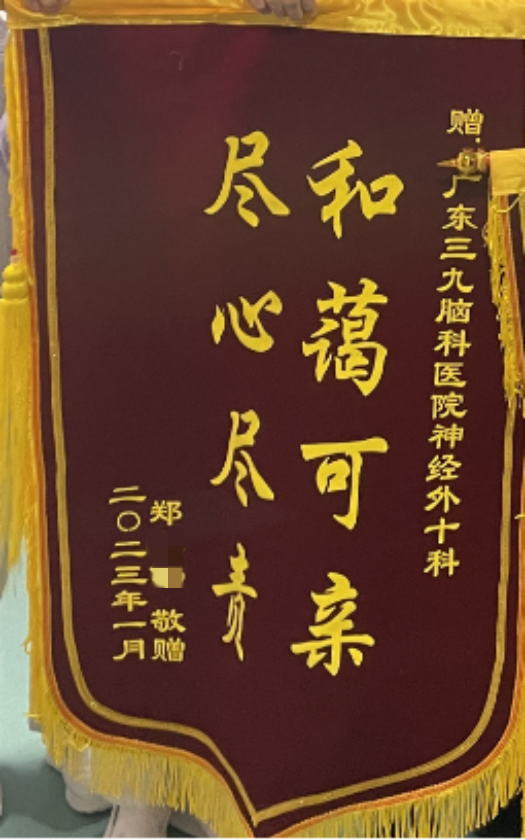 赠:广东三九脑科医院神经外十科
和蔼可亲
尽心尽责
郑 敬赠
二〇二三年一月